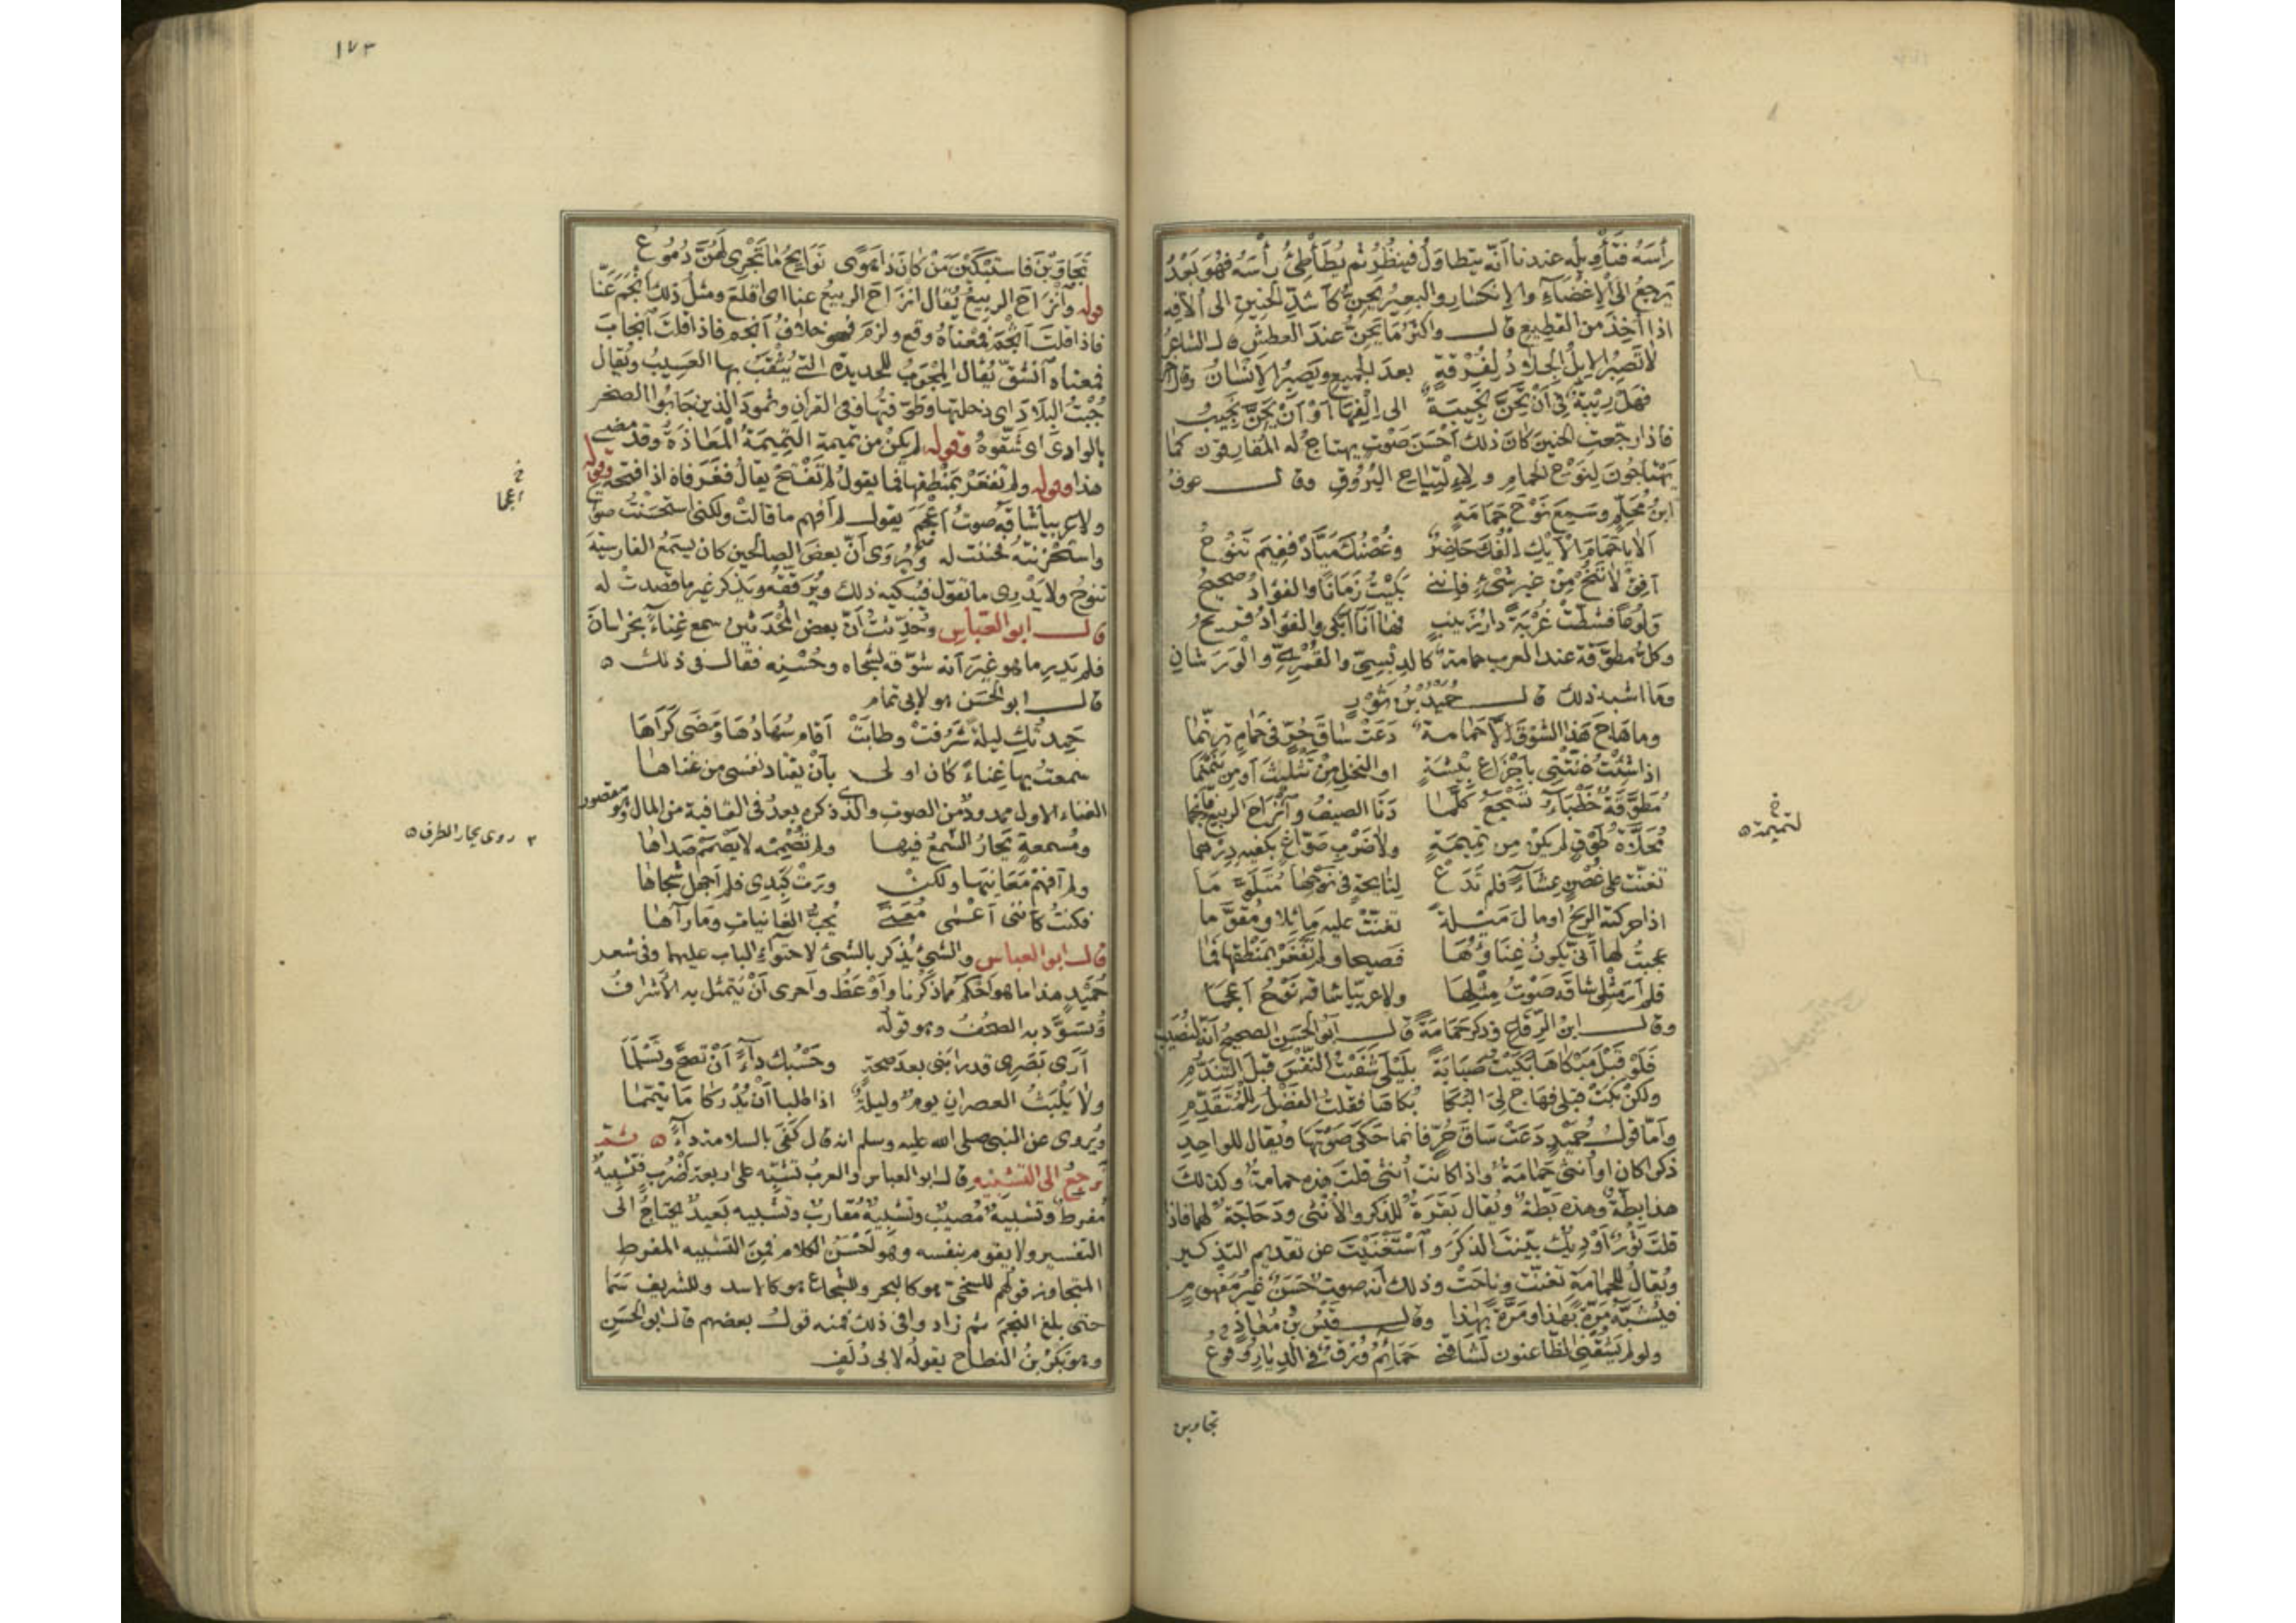 رأسه فتأويله عندنا أنه يتطاول فينظر ثم يطأطئ رأسه فهو بعد
يرجع الى الإغضاء والانكسار والبعير يحن كأشد الحنين الى ألافه
اذا أخذ من القطيع قال واكثر ما يحن عند العطش قال الشاعر
لا تصبر الابل الجلاد لفرقة بعد الجميع ويصبر الإنسان وقال آخر
فهل ريبة في أن تحن نجيبة الى إلفها أو أن يحن نجيب
فاذا رجعت الحنين كان ذلك أحسن صوت يهتاج له المفارقون كما
يهتاجون لنوح الحمام ولالتياح البروق وقال عوف
ابن محلم وسمع نوح حمامة
ألا يا حمام الأيك إلفك حاضر وغصنك مياد ففيم تنوح
أفق لا تنح من غير شيء فإنني بكيت زمانا والفؤاد صحيح
ولوعا فشطت غربة دار زينب فها أنا أبكي والفؤاد قريح
وكل مطوقة عند العرب حمامة كالدبسي والقمري والورشان
وما اشبه ذلك قال حميد بن ثور
وما هاج هذا الشوق إلا حمامة دعت ساق حر في حمام ترنما
اذا شئت غنتني بأجزاع بيشة او النخل من تثليث أو من يلملما
مطوقة خطباء تسجع كلما دنا الصيف وانزاح الربيع فأنجما
محلاة طوق لم يكن من تميمة ولا ضرب صواغ بكفيه درهما
تغنت على غصن عشاء فلم تدع لنائحة في نوحها متلوما
اذا حركته الريح او مال ميلة تغنت عليه مائلا ومقوما
عجبت لها أنى يكون غناؤها فصيحا ولم تفغر بمنطقها فما
فلم أر مثلي شاقه صوت مثلها ولا عربيا شاقه نوح أعجما
وقال ابن الرقاع وذكر حمامة قال أبو الحسن الصحيح أنه لنصيب
فلو قبل مبكاها بكيت صبابة بليلى شفيت النفس قبل التندم
ولكن بكت قبلي فهاج لي البكا بكاها فقلت الفضل للمتقدم
وأما قول حميد دعت ساق حر فانما حكى صوتها ويقال للواحد
ذكرا كان او أنثى حمامة واذا كانت أنثى قلت هذه حمامة وكذلك
هذا بطة وهذه بطة ويقال بقرة للذكر والأنثى ودجاجة لهما فاذا
قلت ثور أو ديك بينت الذكر واستغنيت عن تقديم التذكير
ويقال للحمامة تغنت وناحت وذلك أنه صوت حسن غير مفهوم
فيشبه مرة بهذا ومرة بهذا وقال قيس بن معاذ
ولو لم يشقني الظاعنون لشاقني حمائم ورق في الديار وقوع
تجاوبن
لتميمة
خ
١٧٣
تجاوبن فاستبكين من كان ذا هوى نوائح ما تجري لهن دموع
قوله وانزاح الربيع يقال انزاح الربيع عنا اى اقلع ومثل ذلك أنجم عنا
فاذا قلت أثجم فمعناه وقع ولزم فهو خلاف أنجم فاذا قلت انجاب
فمعناه انشق يقال المجوب للحديدة التي يثقب بها العسيب ويقال
جبت البلاد اى دخلتها وطوفتها وفى القرآن وثمود الذين جابوا الصخر
بالوادى اى شقوه وقوله لم يكن من تميمة التميمة المعاذة وقد مضى
هذا وقوله ولم تفغر بمنطقها فما يقول لم تفتح يقال فغر فاه اذا فتحه وقوله
ولا عربيا شاقه صوت أعجم يقول لم أفهم ما قالت ولكني استحسنت صوتها
واستحزنته فحننت له ويروى أن بعض الصالحين كان يسمع الفارسية
تنوح ولا يدري ما تقول فيبكيه ذلك ويرققه ويذكر غير ما قصدت له
قال ابو العباس وحدثت أن بعض المحدثين سمع غناء بخراسان
فلم يدر ما هو غير أنه شوقه لشجاه وحسنه فقال فى ذلك
قال ابو الحسن هو لابى تمام
حمدتك ليلة شرفت وطابت أقام سهادها ومضى كراها
سمعت بها غناء كان اولى بأن يقتاد نفسى من غناها
الغناء الاول ممدود من الصوت والذى ذكره بعد فى القافية من المال وهو مقصور
ومسمعة يحار السمع فيها ولم تصممه لا يصمم صداها
ولم أفهم معانيها ولكن ورت كبدى فلم أجهل شجاها
فكنت كأننى أعمى معنى يحب الغانيات وما رآها
قال ابو العباس والشئ يذكر بالشئ لاحتواء الباب عليهما وفى شعر
حميد هذا ما هو أحكم مما ذكرنا وأوعظ وأحرى أن يتمثل به الأشراف
وتسود به الصحف وهو قوله
أرى بصرى قد رابنى بعد صحة وحسبك داء أن تصح وتسلما
ولا يلبث العصران يوم وليلة اذا طلبا أن يدركا ما تيمما
ويروى عن النبى صلى الله عليه وسلم انه قال كفى بالسلامة داء ثم
نرجع الى التشبيه قال ابو العباس والعرب تشبه على اربعة أضرب فتشبيه
مفرط وتشبيه مصيب وتشبيه مقارب وتشبيه بعيد يحتاج الى
التفسير ولا يقوم بنفسه وهو أخشن الكلام فمن التشبيه المفرط
المتجاوز قولهم للسخى هو كالبحر وللشجاع هو كالاسد وللشريف سما
حتى بلغ النجم ثم زادوا فى ذلك فمنه قول بعضهم قال ابو الحسن
وهو بكر بن النطاح يقوله لابى دلف
خ
أعجما
روى يحار الطرف